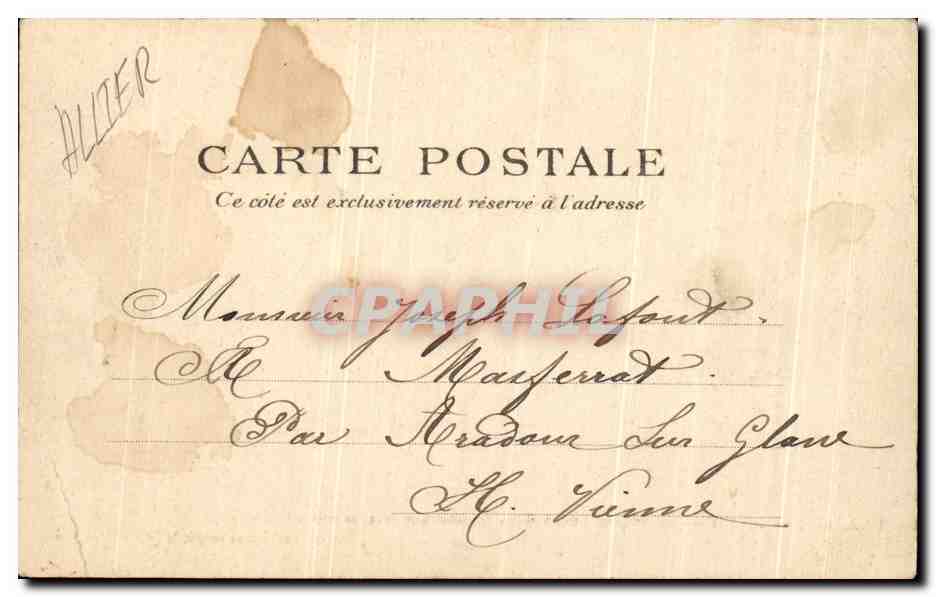 ALLIER
CARTE POSTALE
Ce côté est exclusivement réservé à l'adresse
CPAPHIL
Monsieur Joseph Lafont.
A Masferrat.
Par Aradour Sur Glane
H. Vienne